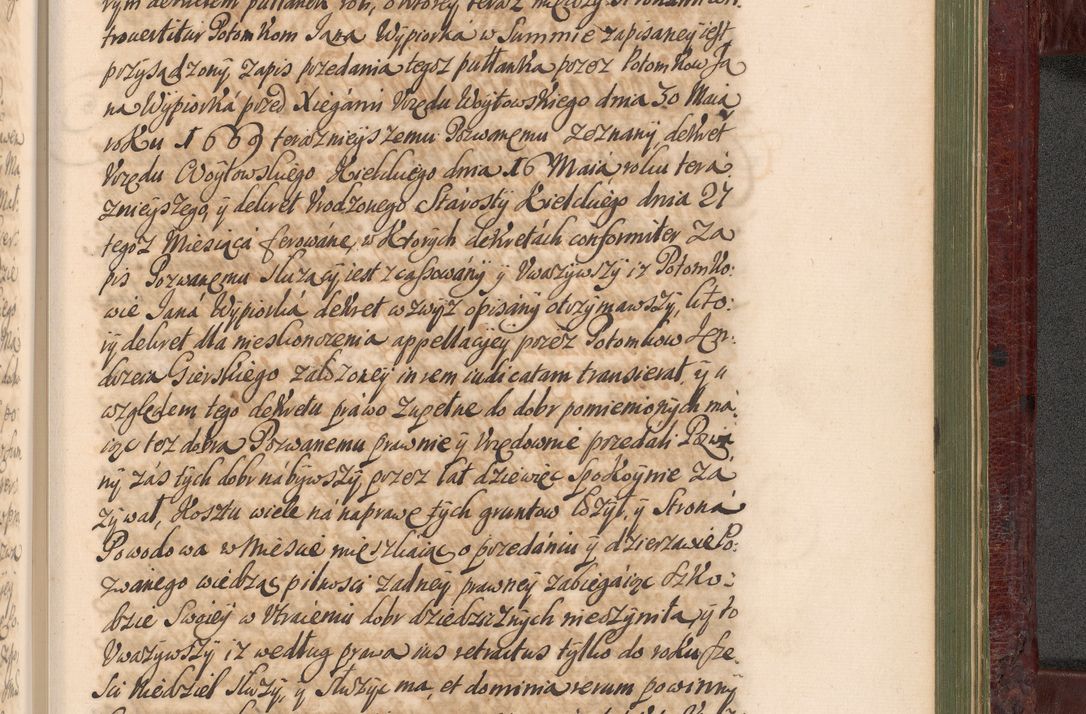 trovertitur Potomkom Jana Wypiorka w Summie zapisaney jest
przysądzony, zapis przedania tegoż pułłanka przez Potomkow Ja
na Wypiorká przed Xięgámi Vrzędu Woytowskiego dnia 30 Maia
roku 1669 teraznieyszemu Pozwanemu zeznány dekret
Vrzędu Woytowskiego Kielckiego dnia 16 Maia roku tera
znieyszego, y dekret Vrodzonego Stárosty Kielckiego dnia 27
tegoż Miesiąca ferowáne, w ktorych dekretach conformiter za
pis Pozwanemu służący jest zcassowány y Vwazywszy iz Potomko:
wie Janá Wypiorká dekret wzwyż opisány otrzymawszy, kto:
ry dekret dla nieskonczenia appellacyey przez Potomkow Jen:
drzeia Gierskiego założoney in rem iudicatam transierat, y u
względem tego dekretu práwo zupełne do dobr pomienionych má:
iąc też dobra Pozwanemu prawnie y Vrzędownie przedali Pozwa
ny zás tych dobr nabywszy, przez lat dziewięc spokoynie zá
żywał, Kosztu wiele ná naprawę tych gruntow łożył, y Strona
Powodowa w Miescie mieszkaiąc o przedániu y dzierzawie Po:
zwanego wiedząc pilnosci zadney prawney zabiegáiąc szko:
dzie Swoiey w Vtraceniu dobr dziedzicznych nieczyniła, y to
Vwazywszy iz według prawa ius retractus tylko do roku sze:
sci Niedziel służy, y służyc ma, et dominia rerum powinny